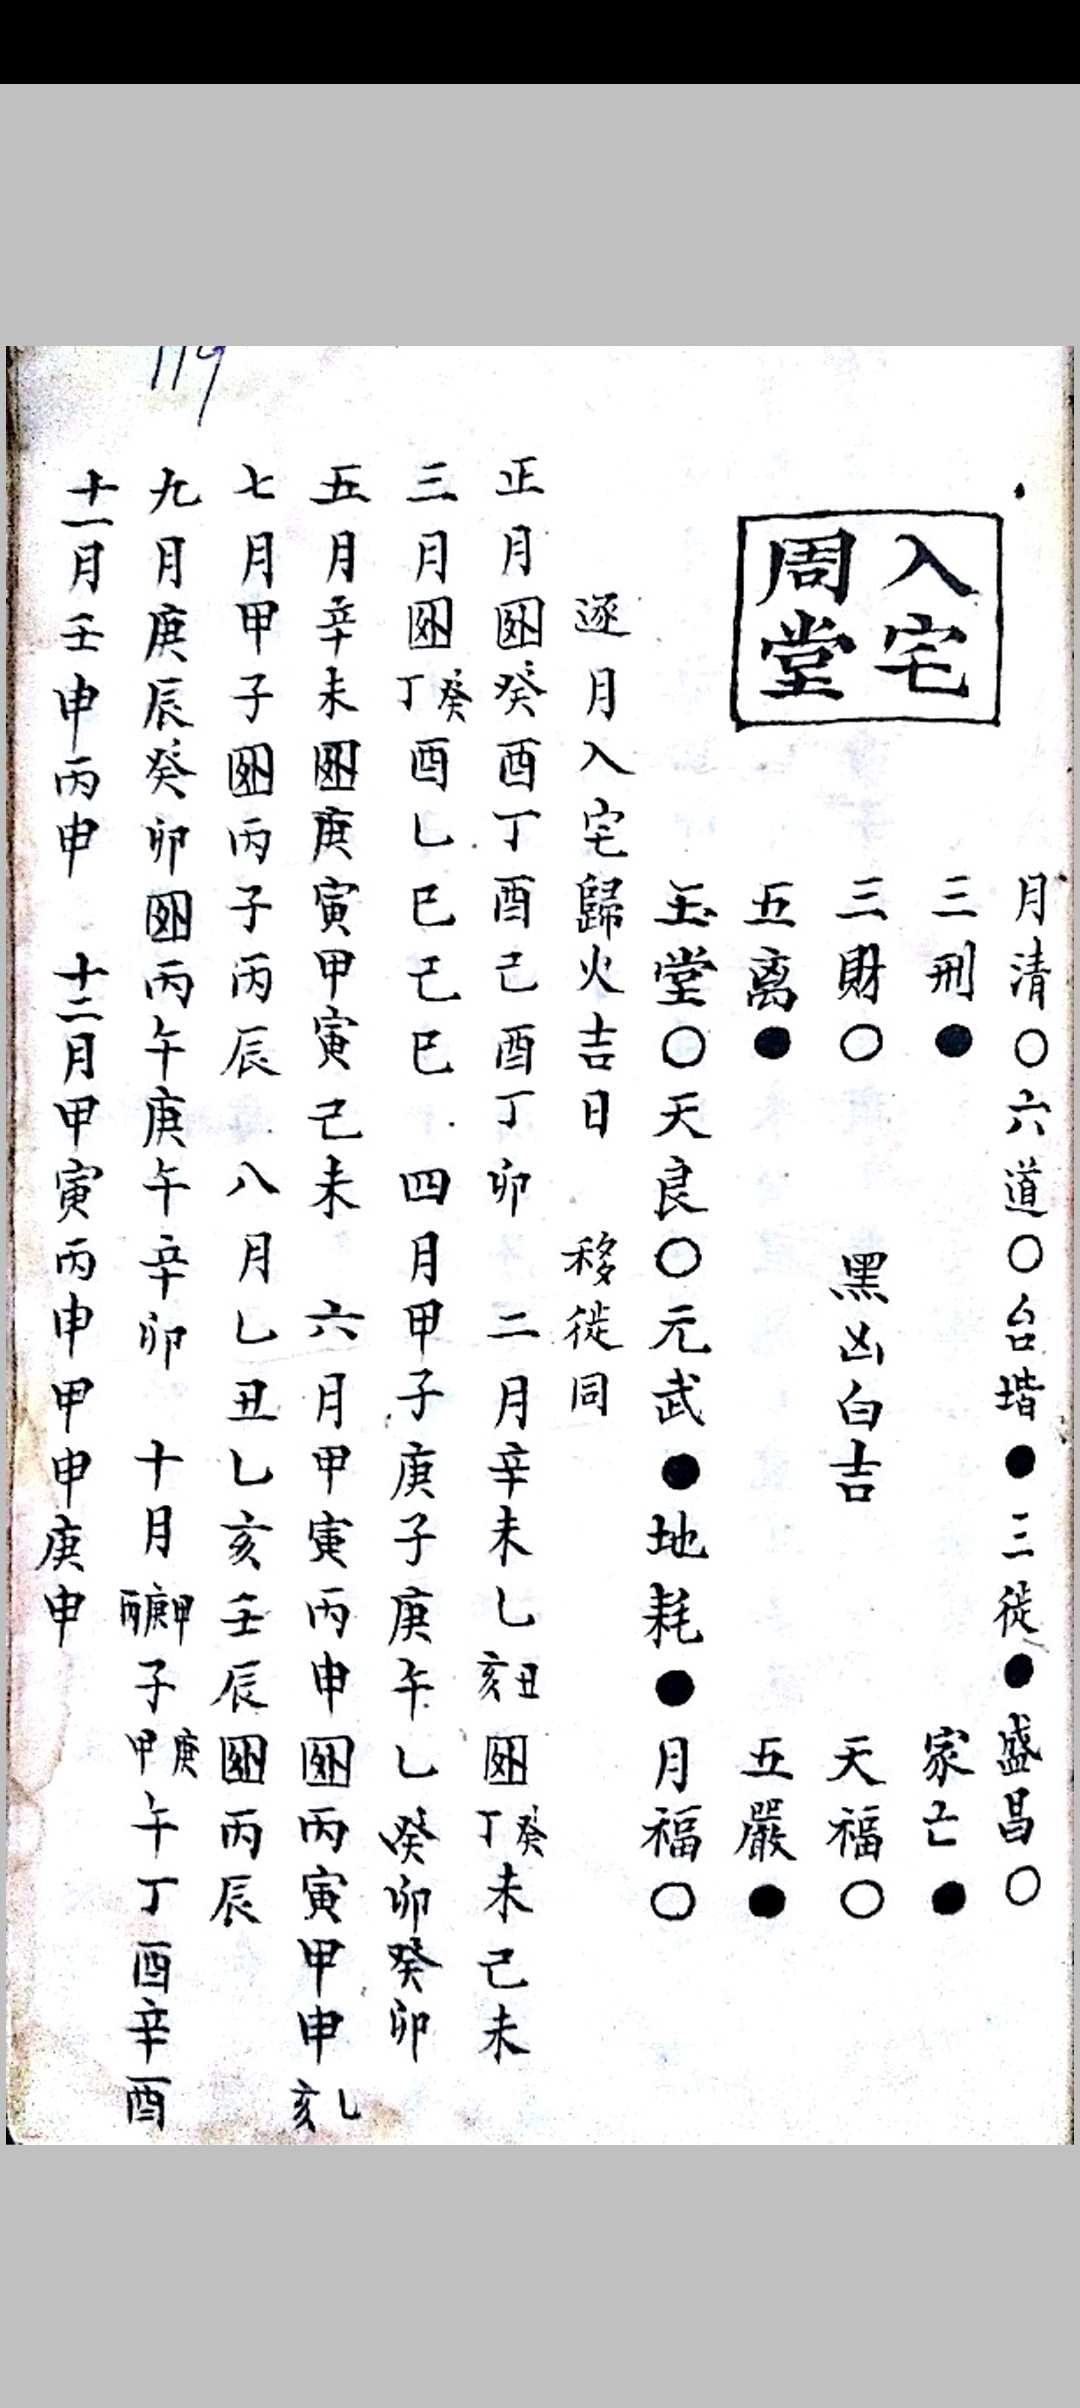 119
入宅
周堂
月清○六道○台堦●三徙●盛昌○
三刑● 家亡●
三財○ 黑凶白吉 天福○
五离● 五嚴●
玉堂○天良○元武●地耗●月福○
逐月入宅歸火吉日 移徙同
正月外癸酉丁酉己酉丁卯 二月辛未乙丑亥外癸丁未己未
三月外癸丁酉乙巳己巳 四月甲子庚子庚午乙癸卯癸卯
五月辛未外庚寅甲寅己未 六月甲寅丙申外丙寅甲申乙亥
七月甲子外丙子丙辰 八月乙丑乙亥壬辰外丙辰
九月庚辰癸卯外丙午庚午辛卯 十月甲庚丙子庚甲午丁酉辛酉
十一月壬申丙申 十二月甲寅丙申甲申庚申